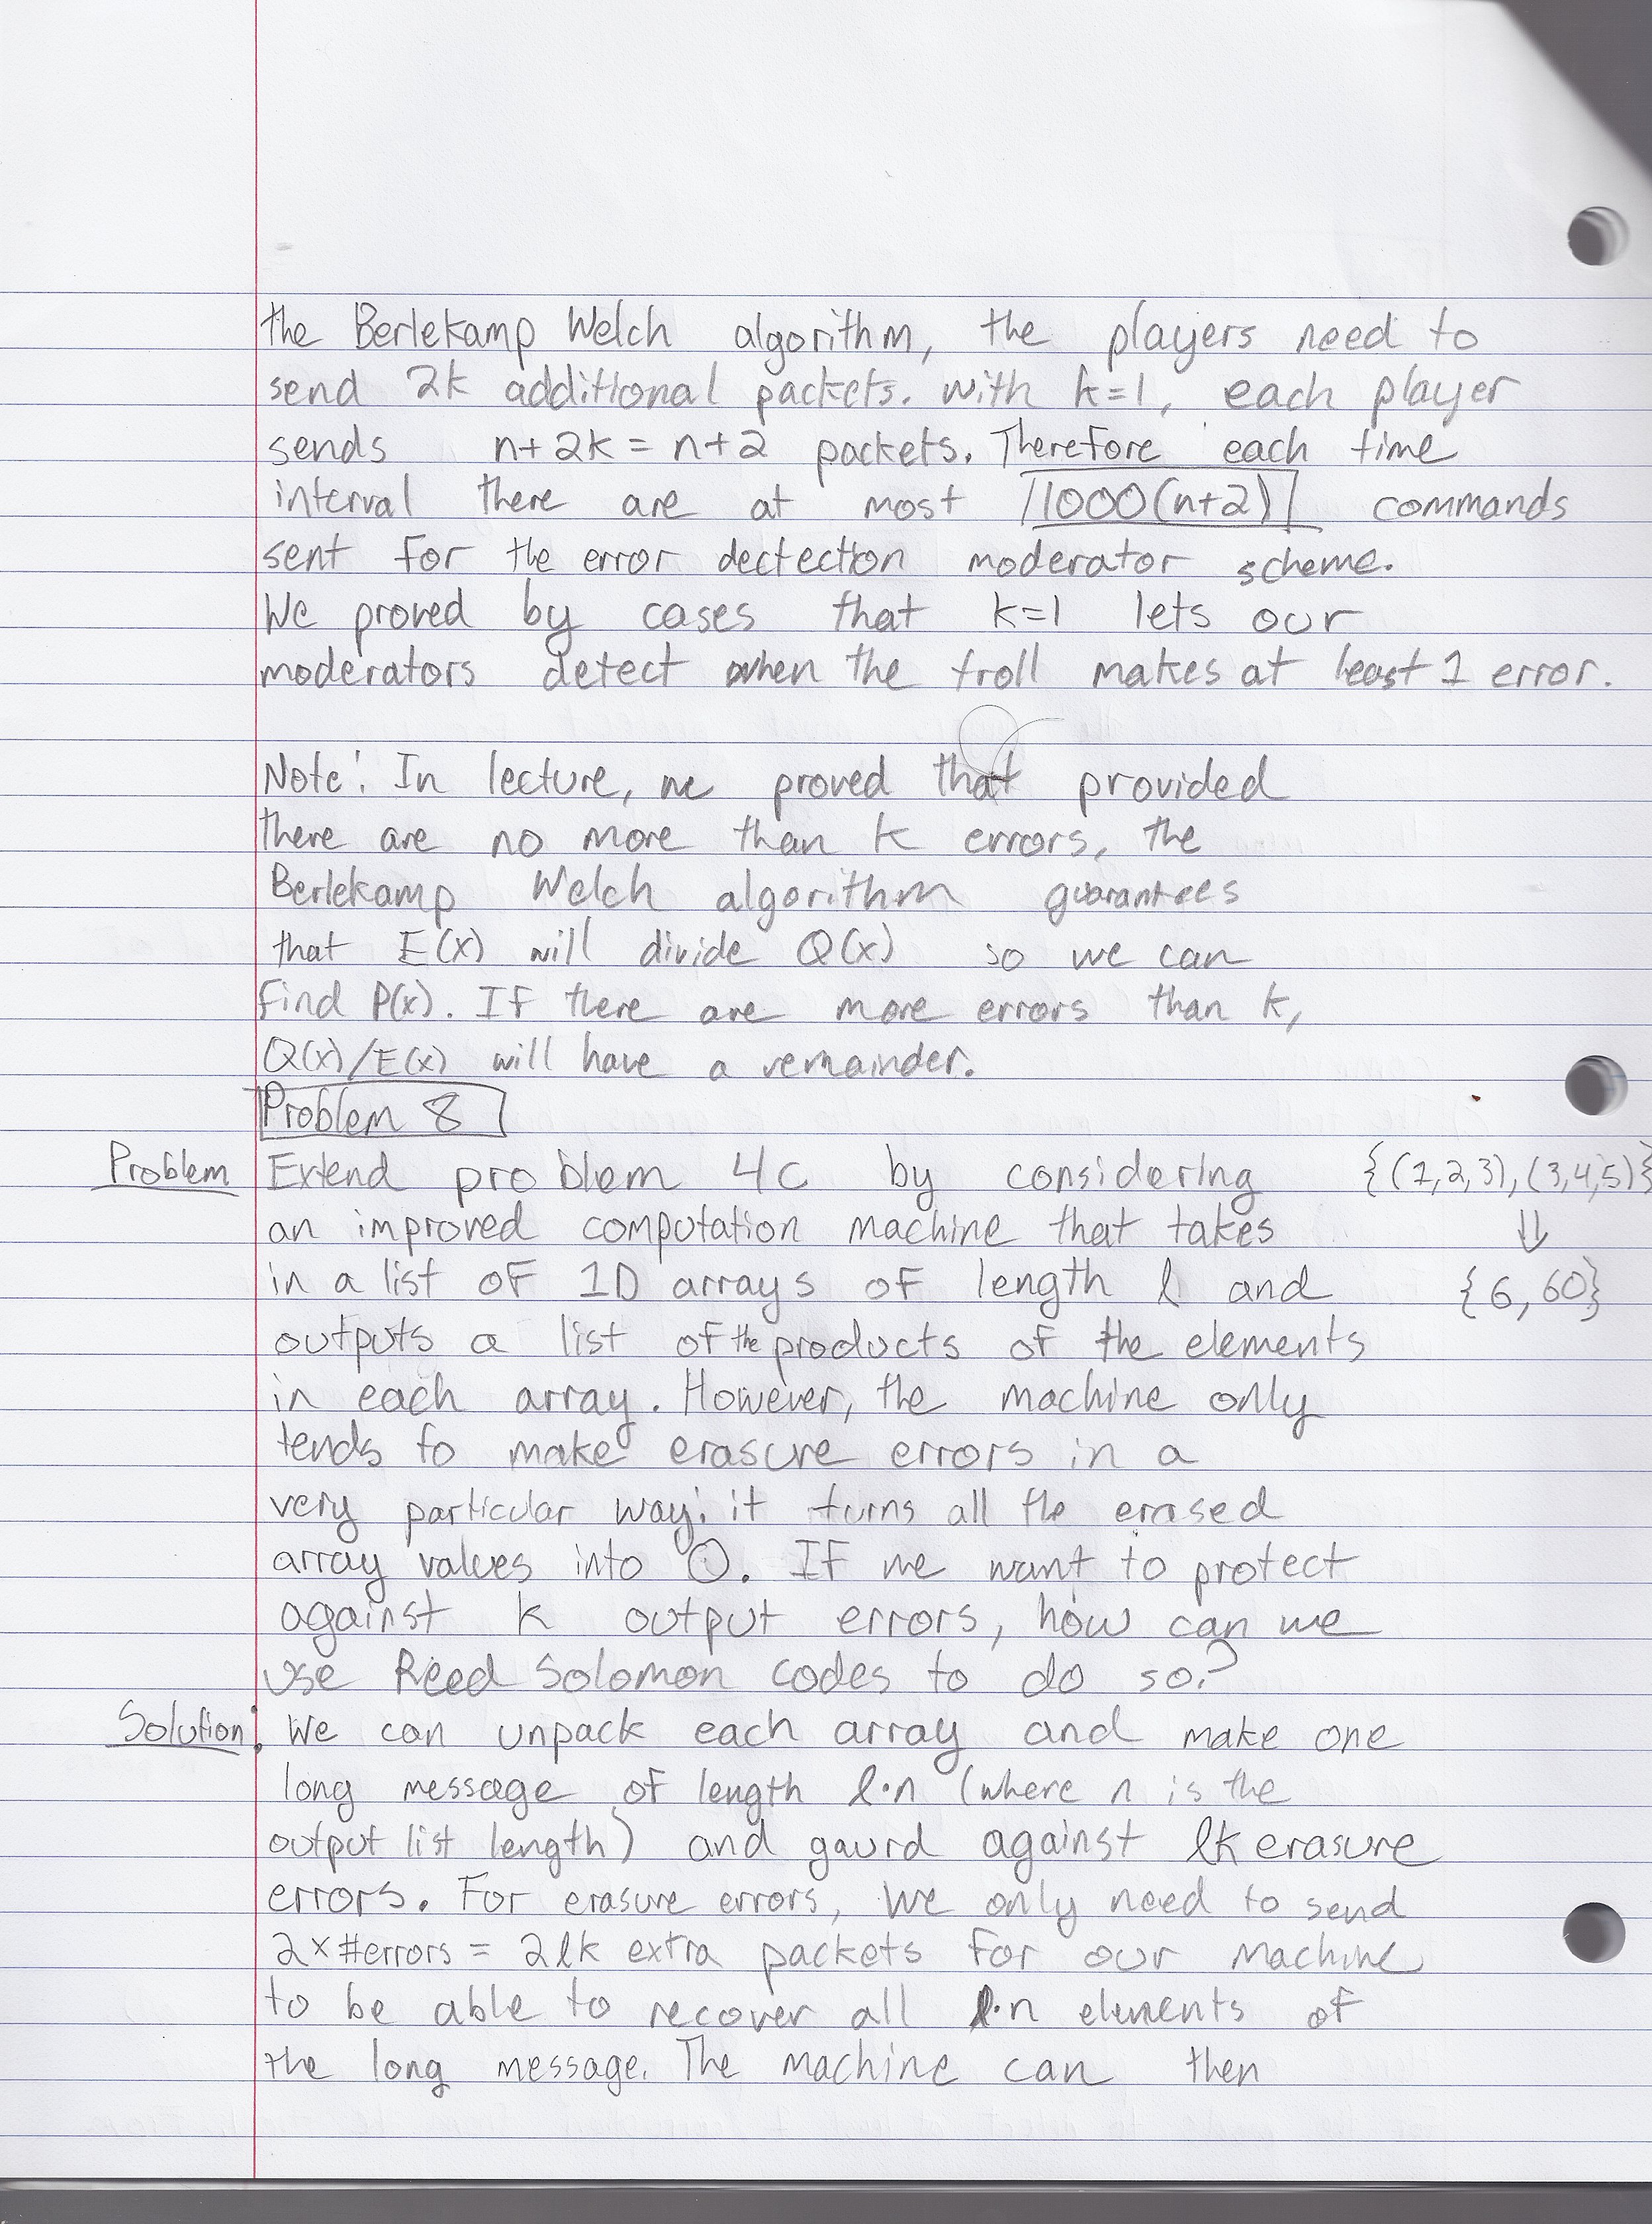 the Berlekamp Welch algorithm, the players need to
send 2k additional packets. With k=1, each player
sends n+2k = n+2 packets. Therefore each time
interval there are at most 1000(n+2) commands
sent for the error dectection moderator scheme.
We proved by cases that k=1 lets our
moderators detect when the troll makes at least 1 error.
Note: In lecture, we proved that provided
there are no more than k errors, the
Berlekamp Welch algorithm guarantees
that E(x) will divide Q(x) so we can
find P(x). If there are more errors than k,
Q(x)/E(x) will have a remainder.
Problem 8
Problem Extend problem 4c by considering {(1,2,3),(3,4,5)}
an improved computation machine that takes ⇓
in a list of 1D arrays of length l and {6, 60}
outputs a list of the products of the elements
in each array. However, the machine only
tends to make erasure errors in a
very particular way: it turns all the erased
array values into 0. If we want to protect
against k output errors, how can we
use Reed Solomon codes to do so?
Solution: We can unpack each array and make one
long message of length l·n (where n is the
output list length) and gaurd against lk erasure
errors. For erasure errors, we only need to send
2×#errors = 2lk extra packets for our machine
to be able to recover all l·n elements of
the long message. The machine can then